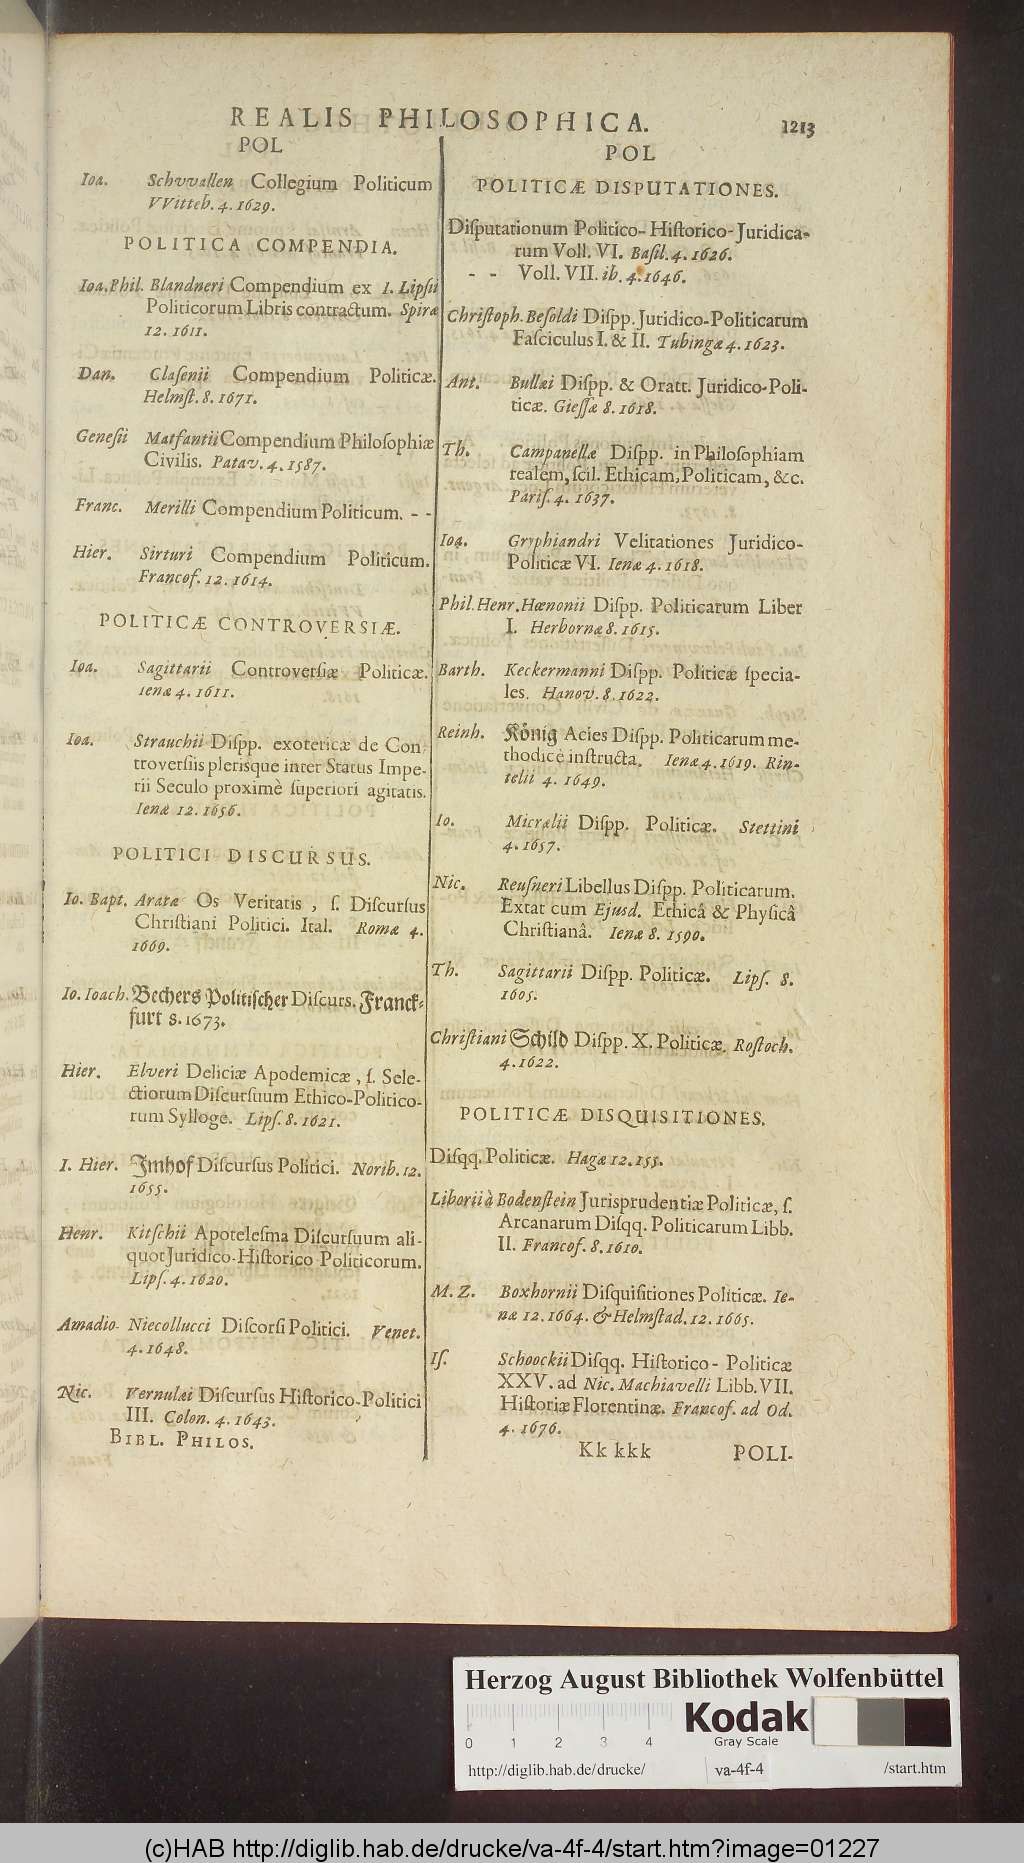 REALIS PHILOSOPHICA. 1213
POL
Ioa. Schvvallen Collegium Politicum
VVitteb. 4. 1629.
POLITICA COMPENDIA.
Ioa. Phil. Blandneri Compendium ex I. Lipsii
Politicorum Libris contractum. Spiræ
12. 1611.
Dan. Clasenii Compendium Politicæ.
Helmst. 8. 1671.
Genesii Matfantii Compendium Philosophiæ
Civilis. Patav. 4. 1587.
Franc. Merilli Compendium Politicum. - -
Hier. Sirturi Compendium Politicum.
Francof. 12. 1614.
POLITICÆ CONTROVERSIÆ.
Ioa. Sagittarii Controversiæ Politicæ.
Ienæ 4. 1611.
Ioa. Strauchii Dispp. exotericæ de Con-
troversiis plerisque inter Status Impe-
rii Seculo proximè superiori agitatis.
Ienæ 12. 1656.
POLITICI DISCURSUS.
Io. Bapt. Arata Os Veritatis, s. Discursus
Christiani Politici. Ital. Romæ 4.
1669.
Io. Ioach. Bechers Politischer Discurs. Franck-
furt 8. 1673.
Hier. Elveri Deliciæ Apodemicæ, s. Sele-
ctiorum Discursuum Ethico-Politico-
rum Sylloge. Lips. 8. 1621.
I. Hier. Imhof Discursus Politici. Norib. 12.
1655.
Henr. Kitschii Apotelesma Discursuum ali-
quot Juridico-Historico-Politicorum.
Lips. 4. 1620.
Amadio Niecollucci Discorsi Politici. Venet.
4. 1648.
Nic. Vernulæi Discursus Historico-Politici
III. Colon. 4. 1643.
BIBL. PHILOS.
POL
POLITICÆ DISPUTATIONES.
Disputationum Politico-Historico-Juridica-
rum Voll. VI. Basil. 4. 1626.
- - Voll. VII. ib. 4. 1646.
Christoph. Besoldi Dispp. Juridico-Politicarum
Fasciculus I. & II. Tubingæ 4. 1623.
Ant. Bullæi Dispp. & Oratt. Juridico-Poli-
ticæ. Giessæ 8. 1618.
Th. Campanellæ Dispp. in Philosophiam
realem, scil. Ethicam, Politicam, &c.
Paris. 4. 1637.
Ioa. Gryphiandri Velitationes Juridico-
Politicæ VI. Ienæ 4. 1618.
Phil. Henr. Hœnonii Dispp. Politicarum Liber
I. Herbornæ 8. 1615.
Barth. Keckermanni Dispp. Politicæ specia-
les. Hanov. 8. 1622.
Reinh. König Acies Dispp. Politicarum me-
thodicè instructa. Ienæ 4. 1619. Rin-
telii 4. 1649.
Io. Micrælii Dispp. Politicæ. Stettini
4. 1657.
Nic. Reusneri Libellus Dispp. Politicarum.
Extat cum Ejusd. Ethicâ & Physicâ
Christianâ. Ienæ 8. 1590.
Th. Sagittarii Dispp. Politicæ. Lips. 8.
1605.
Christiani Schild Dispp. X. Politicæ. Rostoch.
4. 1622.
POLITICÆ DISQUISITIONES.
Disqq. Politicæ. Hagæ 12. 155.
Liborii à Bodenstein Jurisprudentiæ Politicæ, s.
Arcanarum Disqq. Politicarum Libb.
II. Francof. 8. 1610.
M. Z. Boxhornii Disquisitiones Politicæ. Ie-
næ 12. 1664. & Helmstad. 12. 1665.
Is. Schoockii Disqq. Historico-Politicæ
XXV. ad Nic. Machiavelli Libb. VII.
Historiæ Florentinæ. Francof. ad Od.
4. 1676.
Kk kkk POLI-
Herzog August Bibliothek Wolfenbüttel
0 1 2 3 4
Kodak
Gray Scale
http://diglib.hab.de/drucke/ va-4f-4 /start.htm
(c)HAB http://diglib.hab.de/drucke/va-4f-4/start.htm?image=01227